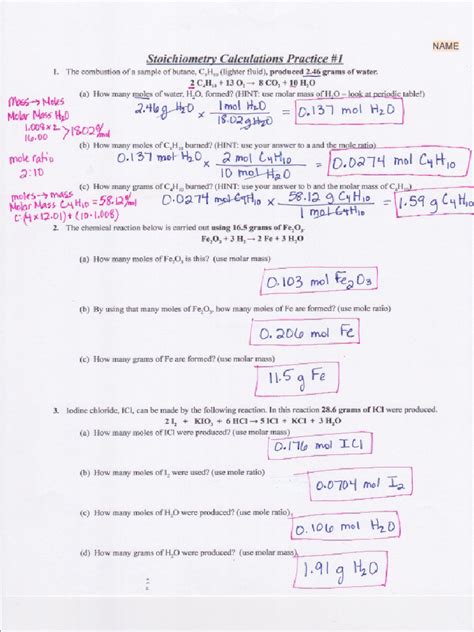 NAME
Stoichiometry Calculations Practice #1
1. The combustion of a sample of butane, C₄H₁₀ (lighter fluid), produced 2.46 grams of water.
2 C₄H₁₀ + 13 O₂ → 8 CO₂ + 10 H₂O
(a) How many moles of water, H₂O, formed? (HINT: use molar mass of H₂O – look at periodic table!)
Mass → Moles
Molar Mass H₂O
1.008×2
16.00 > 18.02 g/mol
2.46g H₂O × 1mol H₂O / 18.02g H₂O = 0.137 mol H₂O
(b) How many moles of C₄H₁₀ burned? (HINT: use your answer to a and the mole ratio)
mole ratio
2:10
0.137 mol H₂O × 2 mol C₄H₁₀ / 10 mol H₂O = 0.0274 mol C₄H₁₀
(c) How many grams of C₄H₁₀ burned? (HINT: use your answer to b and the molar mass of C₄H₁₀)
moles → mass
Molar Mass C₄H₁₀ = 58.12 g/mol
(4×12.01) + (10·1.008)
0.0274 mol C₄H₁₀ × 58.12 g C₄H₁₀ / 1 mol C₄H₁₀ = 1.59 g C₄H₁₀
2. The chemical reaction below is carried out using 16.5 grams of Fe₂O₃.
Fe₂O₃ + 3 H₂ → 2 Fe + 3 H₂O
(a) How many moles of Fe₂O₃ is this? (use molar mass)
0.103 mol Fe₂O₃
(b) By using that many moles of Fe₂O₃, how many moles of Fe are formed? (use mole ratio)
0.206 mol Fe
(c) How many grams of Fe are formed? (use molar mass)
11.5 g Fe
3. Iodine chloride, ICl, can be made by the following reaction. In this reaction 28.6 grams of ICl were produced.
2 I₂ + KIO₃ + 6 HCl → 5 ICl + KCl + 3 H₂O
(a) How many moles of ICl were produced? (use molar mass)
0.176 mol ICl
(b) How many moles of I₂ were used? (use mole ratio)
0.0704 mol I₂
(c) How many moles of H₂O were produced? (use mole ratio)
0.106 mol H₂O
(d) How many grams of H₂O were produced? (use molar mass)
1.91 g H₂O